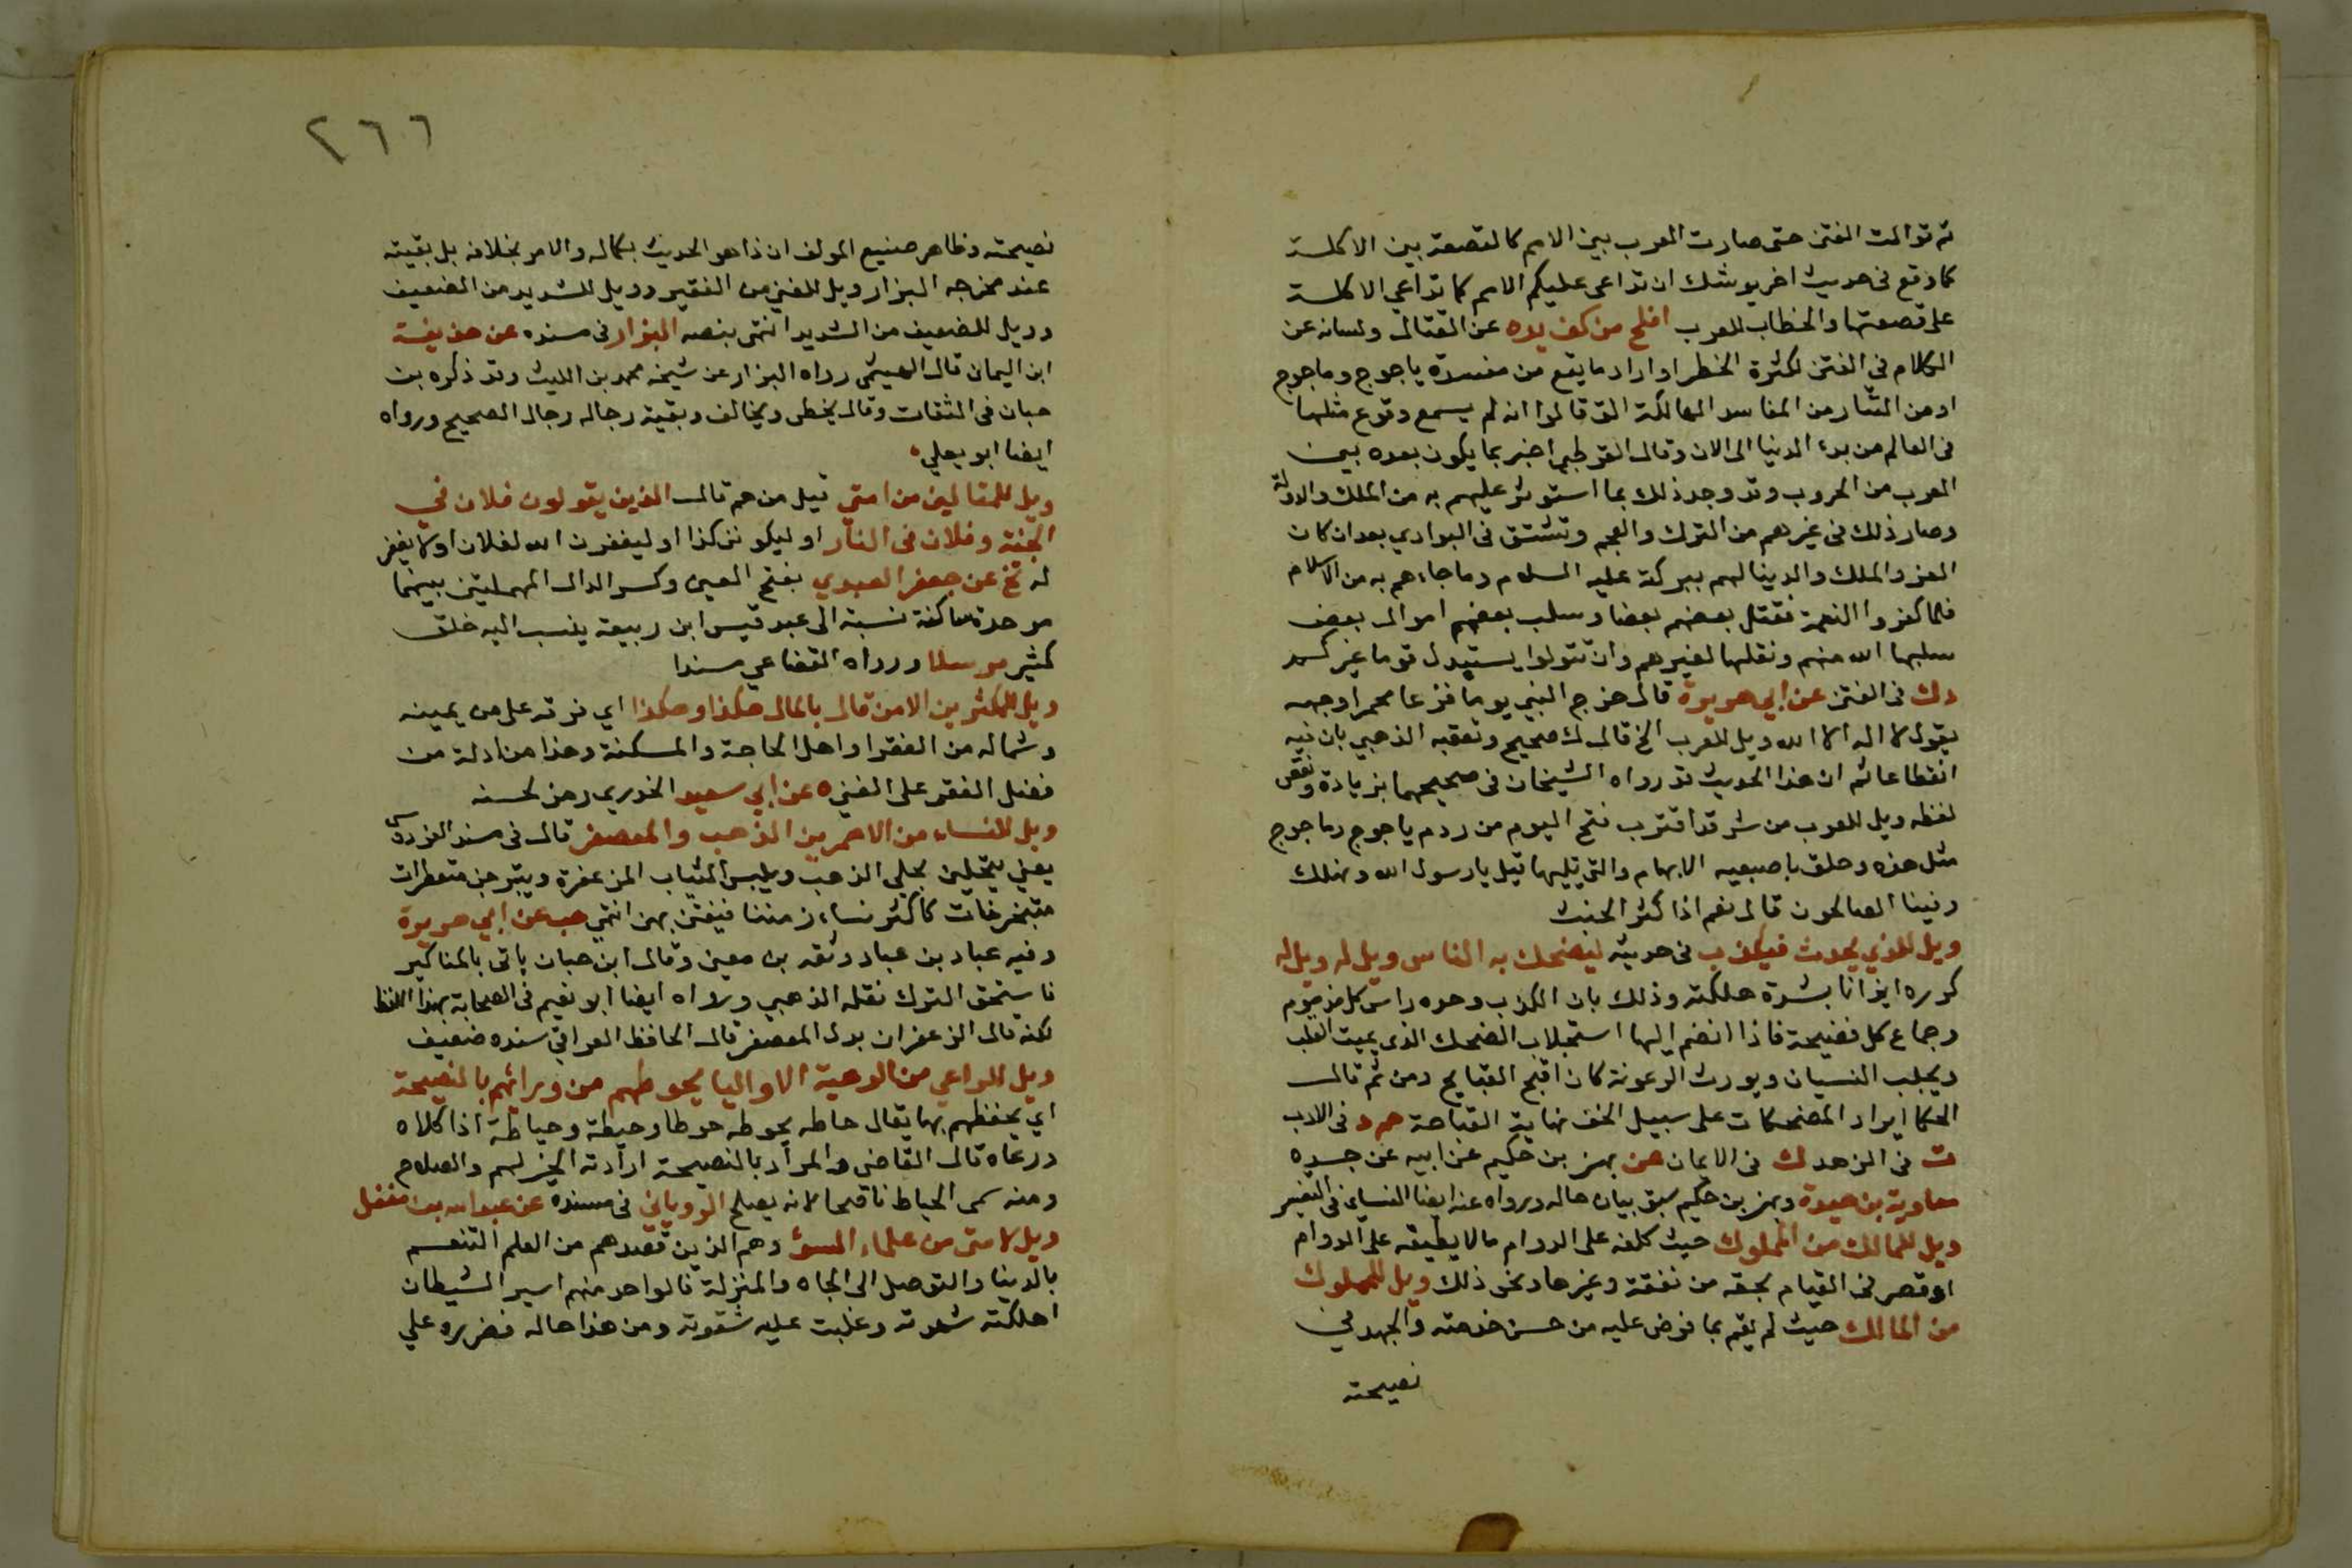 ثم توالت الفتن حتى صارت العرب بين الامم كالقصعة بين الاكلة
كما وقع فى حديث اخر يوشك ان تداعى عليكم الامم كما تداعى الاكلة
على قصعتها والخطاب للعرب افلح من كف يده عن القتال ولسانه عن
الكلام فى الفتن لكثرة الخطر او اراد ما يقع من مفسدة ياجوج وماجوج
او من التتار من المفاسد الهالكة التى قالوا انه لم يسمع وقوع مثلها
فى العالم من بدء الدنيا الى الان وقال القرطبى اخبر بما يكون بعده بين
العرب من الحروب وقد وجد ذلك بما استوثر عليهم به من الملك والدولة
وصار ذلك فى غيرهم من الترك والعجم وتشتتوا فى البوادي بعد ان كان
العز والملك والدينا لهم ببركة عليه السلام وما جاءهم به من الاسلام
فلما كفروا النعمة فقتل بعضهم بعضا وسلب بعضهم اموال بعض
سلبها الله منهم ونقلها لغيرهم وان تتولوا يستبدل قوما غيركم
د ك فى الفتن عن ابي هريرة قال خرج النبي يوما فزعا محمرا وجهه
يقول لا اله الا الله ويل للعرب الخ قال ك صحيح وتعقبه الذهبي بان فيه
انقطاعا ثم ان هذا الحديث قد رواه الشيخان فى صحيحهما بزيادة ونقص
لفظه ويل للعرب من شر قد اقترب فتح اليوم من ردم ياجوج وماجوج
مثل هذه وحلق باصبعيه الابهام والتى تليها قيل يا رسول الله ونهلك
وفينا الصالحون قال نعم اذا كثر الخبث
ويل للذي يحدث فيكذب فى حديثه ليضحك به الناس ويل له ويل له
كرره ايذانا بشدة هلكته وذلك بان الكذب وحده راس كل مذموم
وجماع كل فضيحة فاذا انضم اليها استجلاب الضحك الذى يميت القلب
ويجلب النسيان ويورث الرعونة كان اقبح القبايح ومن ثم قال
الحكما ايراد المضحكات على سبيل الخف نهاية القباحة حم د فى الادب
ت فى الزهد ك فى الايمان عن بهز بن حكيم عن ابيه عن جده
معاوية بن حيدة وبهز بن حكيم سبق بيان حاله ورواه عنه ايضا النسائى فى التفسير
ويل للمالك من المملوك حيث كلفه على الدوام ما لا يطيقه على الدوام
او قصر فى القيام بحقه من نفقة وغيرها ونحو ذلك ويل للمملوك
من المالك حيث لم يقم بما فرض عليه من حسن خدمته والجهد في
نصيحته
٢٦٦
نصيحته وظاهر صنيع المولف ان ذا هو الحديث بكماله والامر بخلافه بل بقيته
عند مخرجه البزار ويل للغنى من الفقير وويل للشديد من الضعيف
وويل للضعيف من الشديد انتهى بنصه البزار فى مسنده عن حذيفة
ابن اليمان قال الهيثمى رواه البزار عن شيخه محمد بن الليث وقد ذكره بن
حبان فى الثقات وقال يخطى ويخالف وبقية رجاله رجال الصحيح ورواه
ايضا ابو يعلي
ويل للمتالين من امتي قيل من هم قال الذين يقولون فلان في
الجنة وفلان فى النار او ليكونن كذا او ليغفرن الله لفلان او لا يغفر
له تخ عن جعفر العبدي بفتح العين وكسر الدال المهملتين بينهما
موحدة ساكنة نسبة الى عبد قيس ابن ربيعة ينسب اليه خلق
كثير مرسلا ورواه القضاعي مسندا
ويل للمكثرين الا من قال بالمال هكذا وهكذا اي فرقه على من يمينه
وشماله من الفقرا واهل الحاجة والمسكنة وهذا من ادلة من
فضل الفقر على الغنى ه عن ابي سعيد الخدري رمز لحسنه
ويل للنساء من الاحمرين الذهب والمعصفر قال فى مسند الفردوس
يعني يتحلين بحلي الذهب ويلبس الثياب المزعفرة ويتبرجن متعطرات
متبخترات كاكثر نساء زمننا فيفتن بهن انتهى هب عن ابي هريرة
وفيه عباد بن عباد وثقه بن معين وقال ابن حبان ياتى بالمناكير
فاستحق الترك نقله الذهبي ورواه ايضا ابو نعيم فى الصحابة بهذا اللفظ
لكنه قال الزعفران بدل المعصفر قال الحافظ العراقي سنده ضعيف
ويل للواعي من الرعية الا واليا يحوطهم من ورائهم بالنصيحة
اي يحفظهم بها يقال حاطه يحوطه حوطا وحيطة وحياطة اذا كلاه
ورعاه قال القاضى والمراد بالنصيحة ارادته الخير لهم والصلاح
ومنه سمى الخياط ناصحا لانه يصلح الروياني فى مسنده عن عبد الله بن مغفل
ويل لامتى من علماء السوء وهم الذين قصدهم من العلم التنعم
بالدينا والتوصل الى الجاه والمنزلة فالواحد منهم اسير الشيطان
اهلكته شهوته وغلبت عليه شقوته ومن هذا حاله فضرره علي